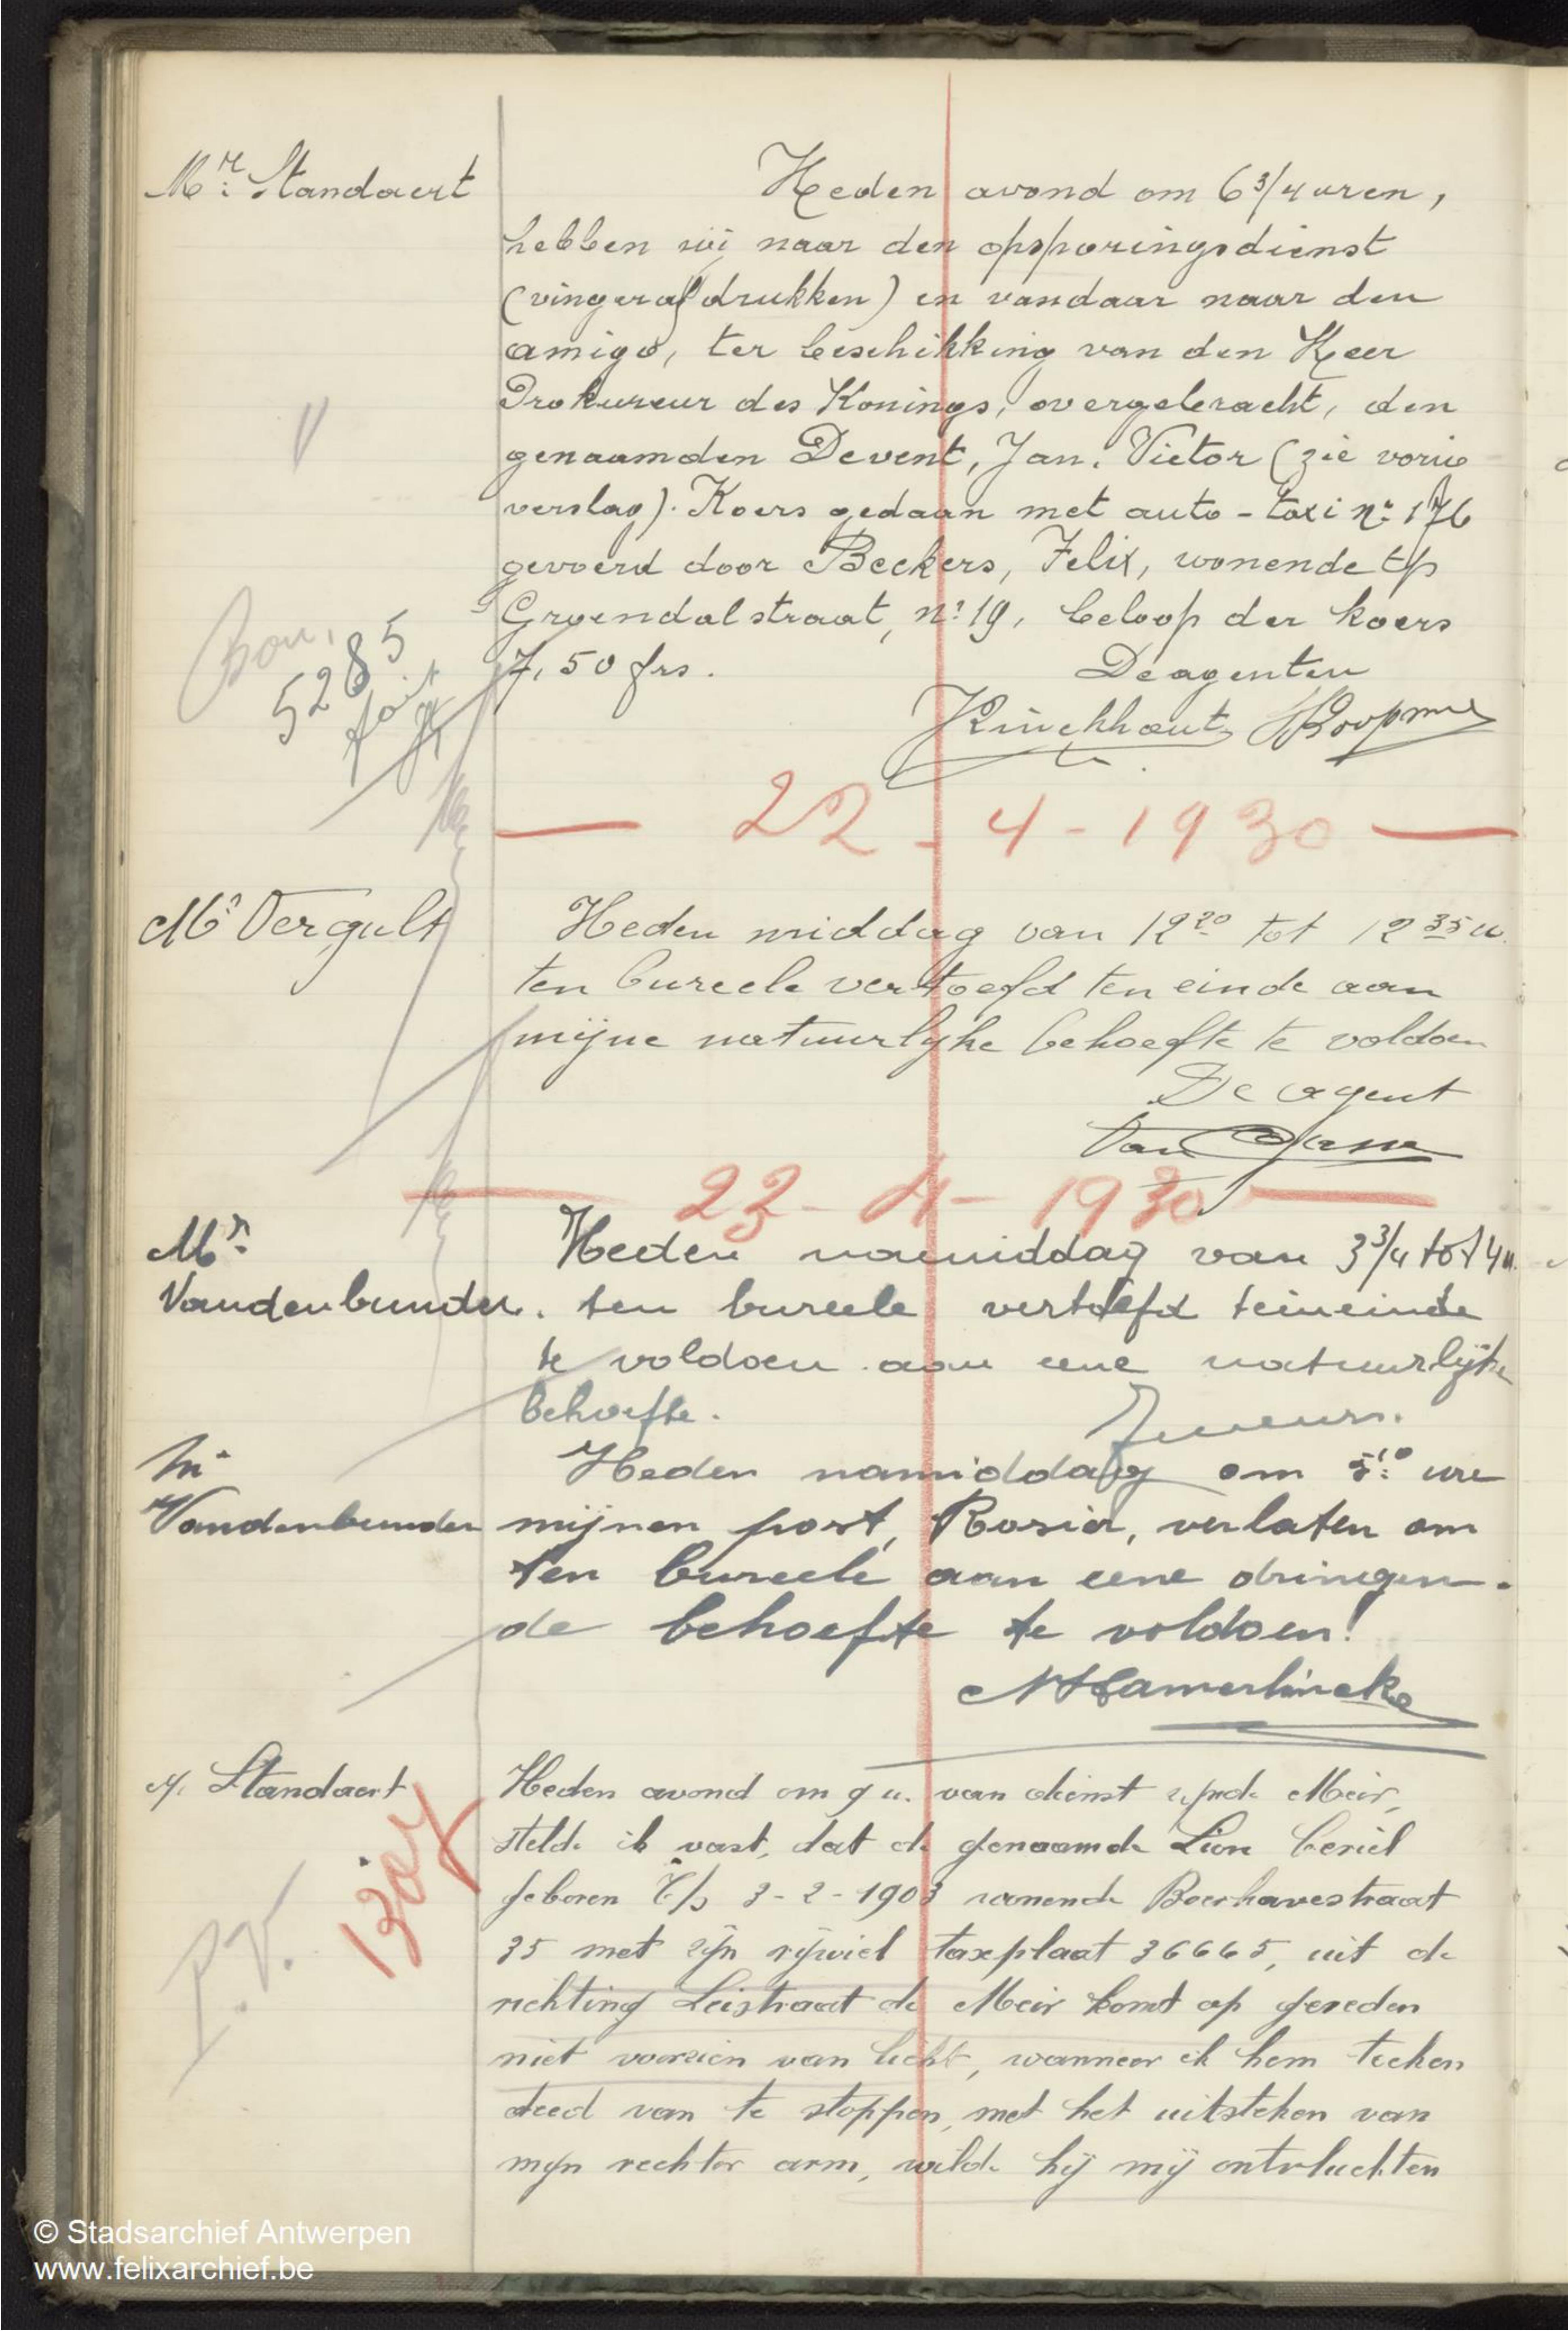 Mr. Standaert
Heden avond om 6 3/4 uren,
hebben wij naar den opsporingsdienst
(vingerafdrukken) en vandaar naar den
amigo, ter beschikking van den Heer
Prokureur des Konings, overgebracht, den
genaamden Devent, Jan. Victor (zie vorig
verslag). Koers gedaan met auto-taxi nr 176
gevoerd door Beckers, Felix, wonende t/s
Groendalstraat, nr 19, beloop der koers
7,50 frs.
Bon.
5285
fait
De agenten
22-4-1930
Mr Vergult
Heden middag van 12 20 tot 12 35 u.
ten bureele vertoefd ten einde aan
mijne natuurlyke behoefte te voldoen
De agent
Van
23-4-1930
Mr.
Vandenbunder.
Heden namiddag van 3 3/4 tot 4 u.
ten bureele vertoefd teneinde
te voldoen aan eene natuurlijke
behoefte.
Mr
Vandenbunder
Heden namiddag om 5 10 ure
mijnen post, Rosier, verlaten om
ten bureele aan eene dringen-
de behoefte te voldoen!
Hamerlinck
M. Standaert
P.V.
Heden avond om 9 u. van dienst zynde Meir,
stelde ik vast, dat de genaamde Lion Beriel
geboren t/s 3-2-1903 wonende Boerhavestraat
35 met zijn rijwiel taxeplaat 36665, uit de
richting Leistraat de Meir komt op gereden
niet voorzien van licht, wanneer ik hem teeken
deed van te stoppen, met het uitsteken van
myn rechter arm, wilde hij mij ontvluchten
© Stadsarchief Antwerpen
www.felixarchief.be